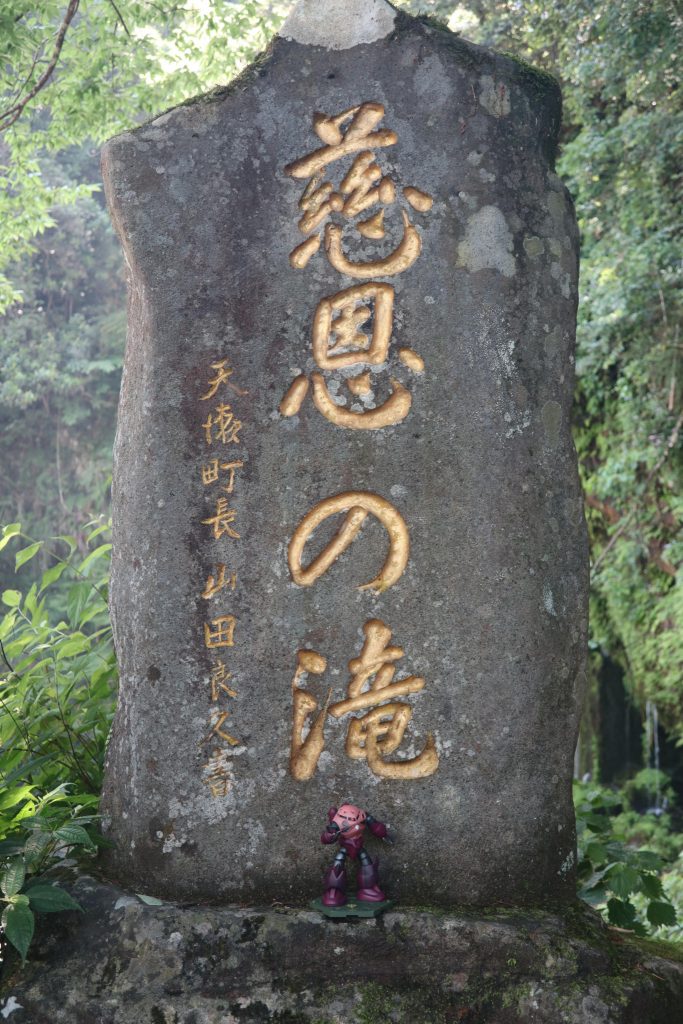 慈恩の滝
天瀬町長 山田良久書